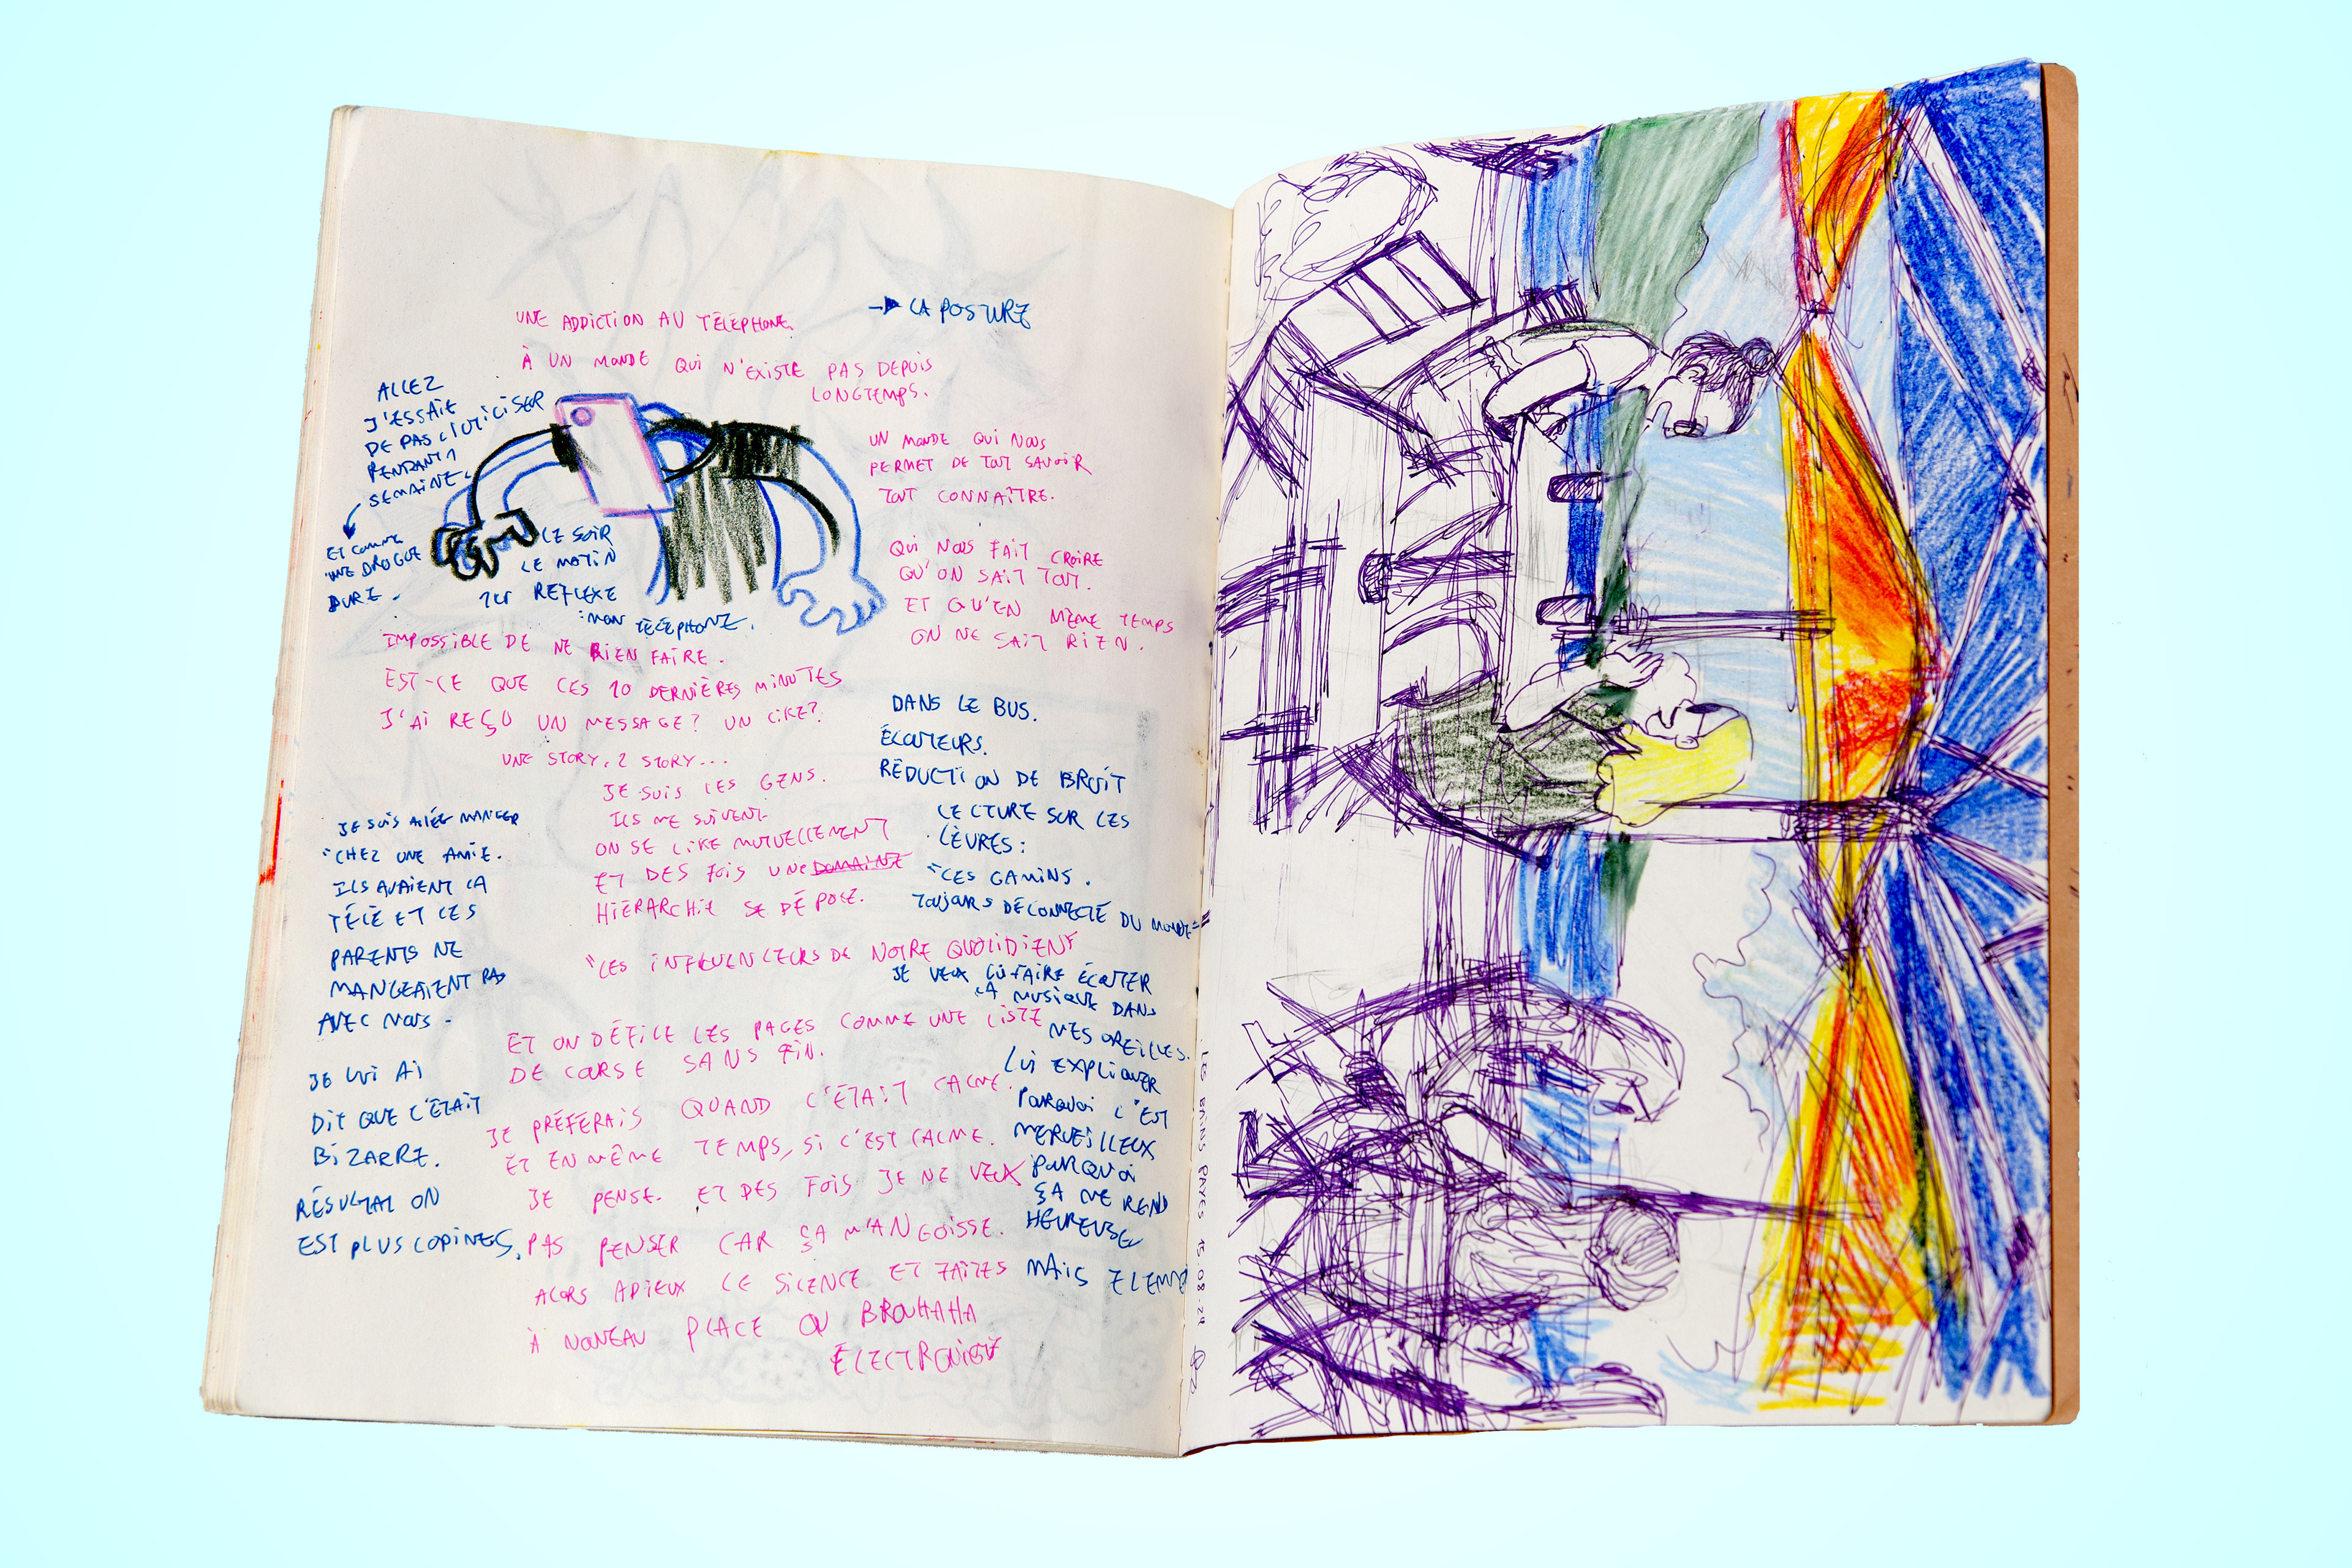 UNE ADDICTION AU TÉLÉPHONE
À UN MONDE QUI N'EXISTE PAS DEPUIS
LONGTEMPS.
→ LA POSTURE
ALLEZ
J'ESSAIE
DE PAS L'UTILISER
PENDANT 1
SEMAINE.
ET COMME
UNE DROGUE
DURE.
LE SOIR
LE MATIN
1ER REFLEXE
: MON TÉLÉPHONE.
UN MONDE QUI NOUS
PERMET DE TOUT SAVOIR
TOUT CONNAÎTRE.
QUI NOUS FAIT CROIRE
QU'ON SAIT TOUT.
ET QU'EN MÊME TEMPS
ON NE SAIT RIEN.
IMPOSSIBLE DE NE RIEN FAIRE.
EST-CE QUE CES 10 DERNIÈRES MINUTES
J'AI REÇU UN MESSAGE? UN LIKE?
UNE STORY, 2 STORY...
JE SUIS LES GENS.
ILS ME SUIVENT
ON SE LIKE MUTUELLEMENT
ET DES FOIS UNE DOMAINE
HIÉRARCHIE SE DÉPOSE.
"LES INFLUENCEURS DE NOTRE QUOTIDIEN"
ET ON DÉFILE LES PAGES COMME UNE LISTE
DE COURSE SANS FIN.
JE PRÉFÉRAIS QUAND C'ÉTAIT CALME.
ET EN MÊME TEMPS, SI C'EST CALME.
JE PENSE. ET DES FOIS JE NE VEUX
PAS PENSER CAR ÇA M'ANGOISSE.
ALORS ADIEUX LE SILENCE ET FAITES
À NOUVEAU PLACE OU BROUHAHA
ÉLECTRONIQUE
JE SUIS ALLÉE MANGER
CHEZ UNE AMIE.
ILS AVAIENT LA
TÉLÉ ET LES
PARENTS NE
MANGEAIENT PAS
AVEC NOUS.
JE LUI AI
DIT QUE C'ÉTAIT
BIZARRE.
RÉSULTAT ON
EST PLUS COPINES.
DANS LE BUS.
ÉCOUTEURS.
RÉDUCTION DE BRUIT
LECTURE SUR LES
LÈVRES:
"CES GAMINS.
TOUJOURS DÉCONNECTÉ DU MONDE"
JE VEUX LUI FAIRE ÉCOUTER
LA MUSIQUE DANS
MES OREILLES.
LUI EXPLIQUER
POURQUOI C'EST
MERVEILLEUX
POURQUOI
ÇA ME REND
HEUREUSE
MAIS
LES BAINS PAYÉS 15.08.24